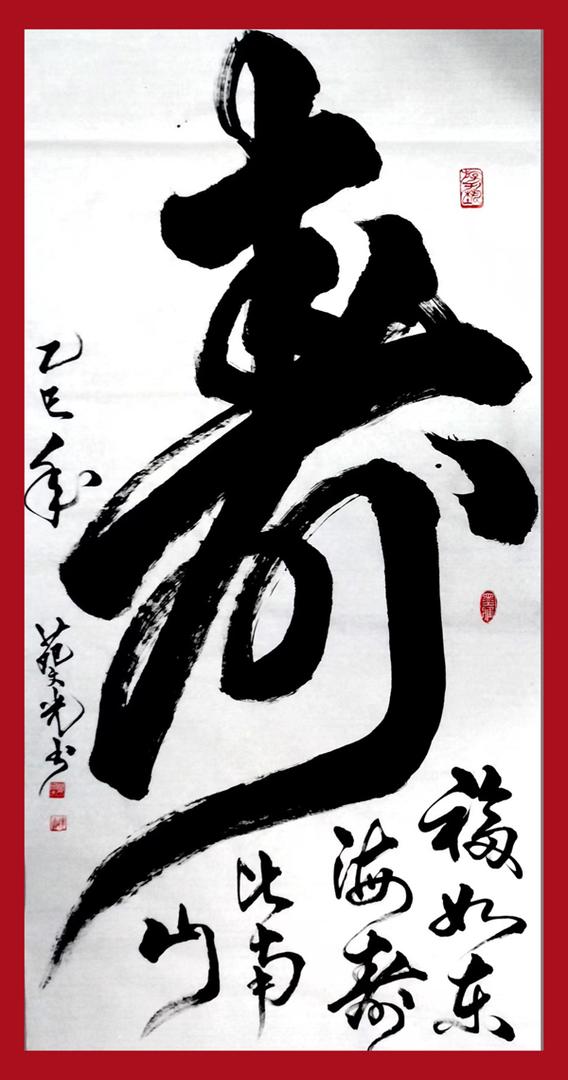 寿
福如东
海寿
比南
山
乙巳年
范葵光书